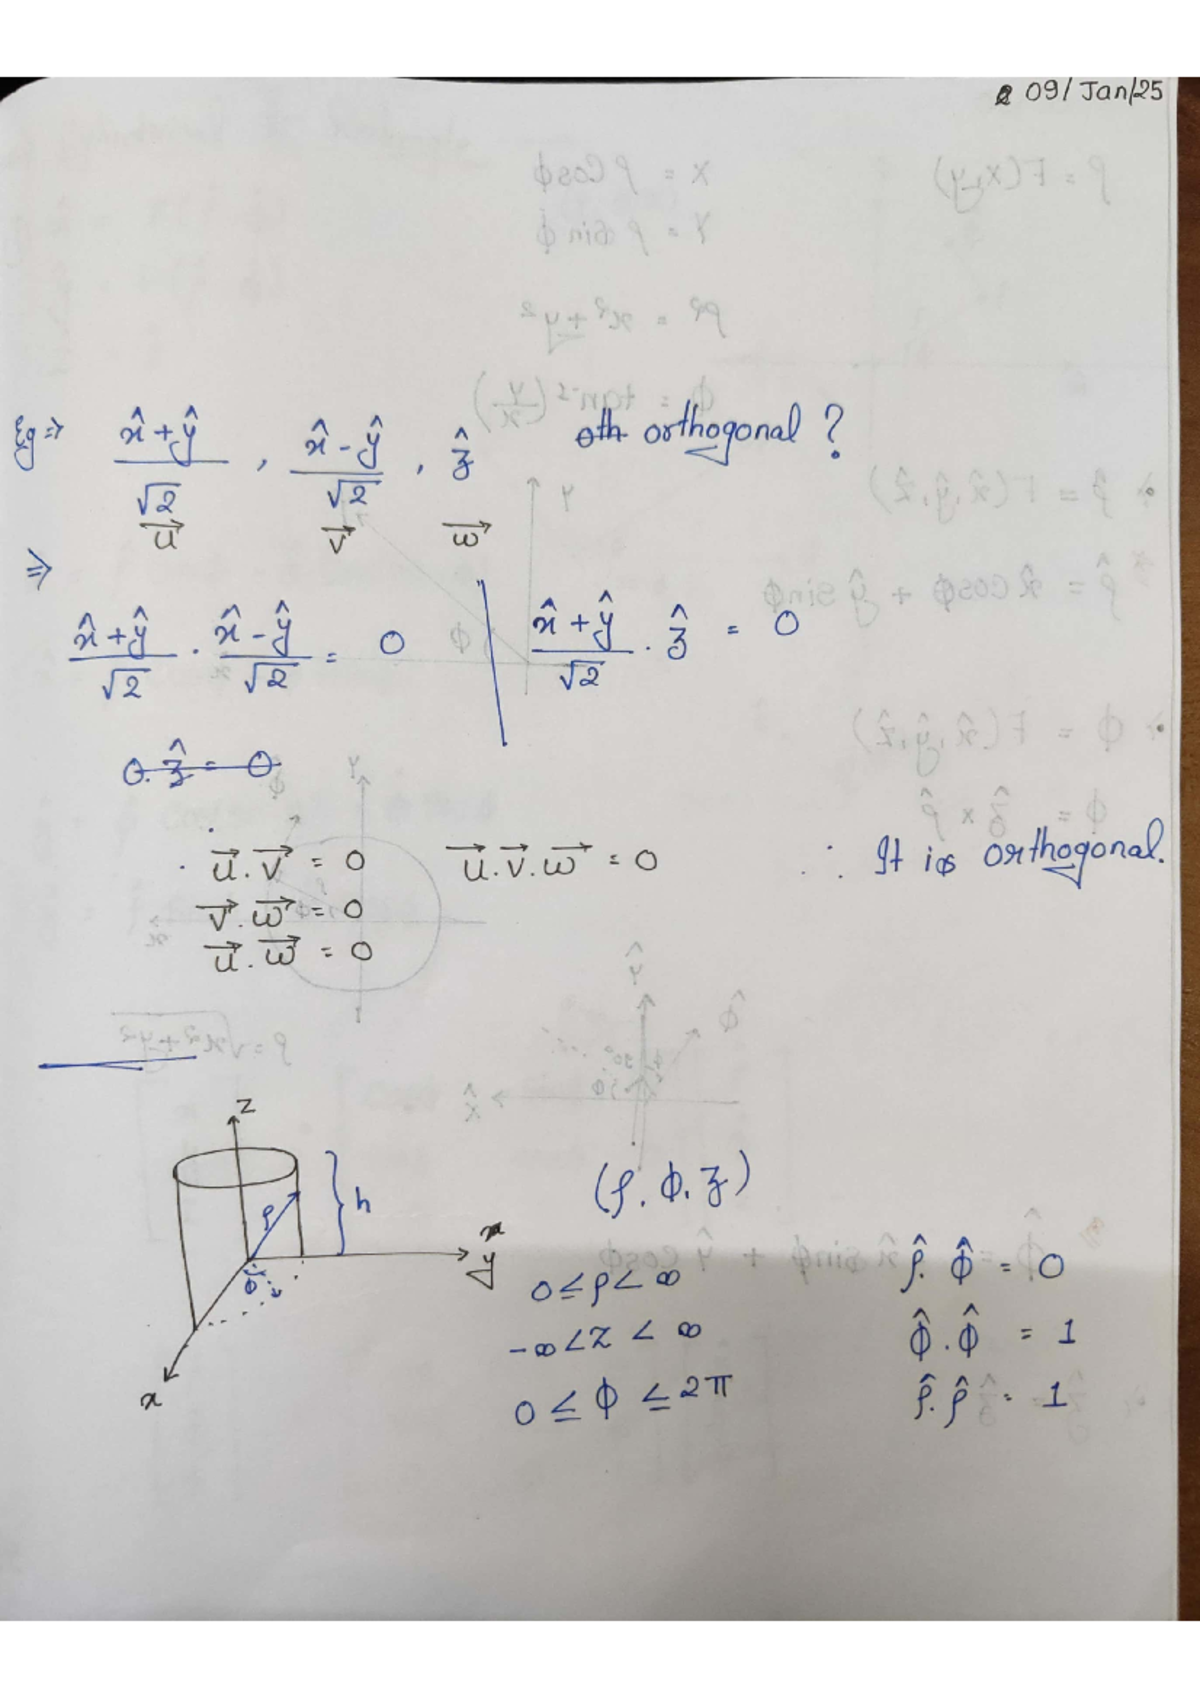 09/Jan/25
Eg ⇒ (x̂+ŷ)/√2 , (x̂-ŷ)/√2 , ẑ orthogonal ?
u⃗ v⃗ w⃗
⇒
(x̂+ŷ)/√2 . (x̂-ŷ)/√2 = 0 | (x̂+ŷ)/√2 . ẑ = 0
0. ẑ = 0
u⃗.v⃗ = 0 u⃗.v⃗.w⃗ = 0 ∴ It is orthogonal.
v⃗.w⃗ = 0
u⃗.w⃗ = 0
z
ρ
h
ϕ
y
x
(ρ, ϕ, z)
0 ≤ ρ < ∞ ρ̂. ϕ̂ = 0
-∞ < z < ∞ ϕ̂ . ϕ̂ = 1
0 ≤ ϕ ≤ 2π ρ̂. ρ̂ = 1